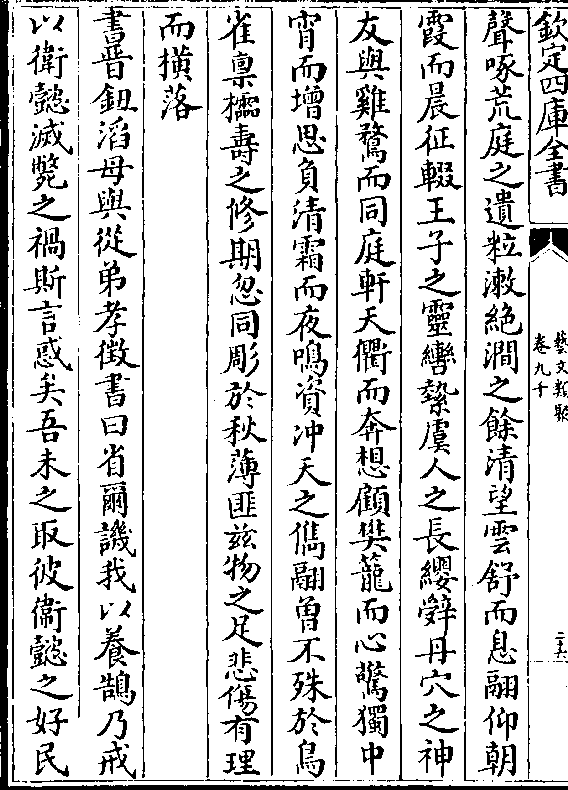 欽定四庫全書
藝文類聚
卷九十
聲啄荒庭之遺粒漱絶澗之餘清望雲舒而息翮仰朝
霞而晨征輟王子之靈轡縶虞人之長纓辭丹穴之神
友與雞鶩而同庭軒天衢而奔想顧樊籠而心驚獨中
宵而增思負清霜而夜鳴資冲天之儁翮曾不殊於鳥
雀禀樗壽之修期忽同彫於秋薄匪兹物之足悲傷有理
而橫落
書晉鈕滔母與從弟孝徵書曰省爾譏我以養鵠乃戒
以衛懿滅斃之禍斯言惑矣吾未之取彼衞懿之好民